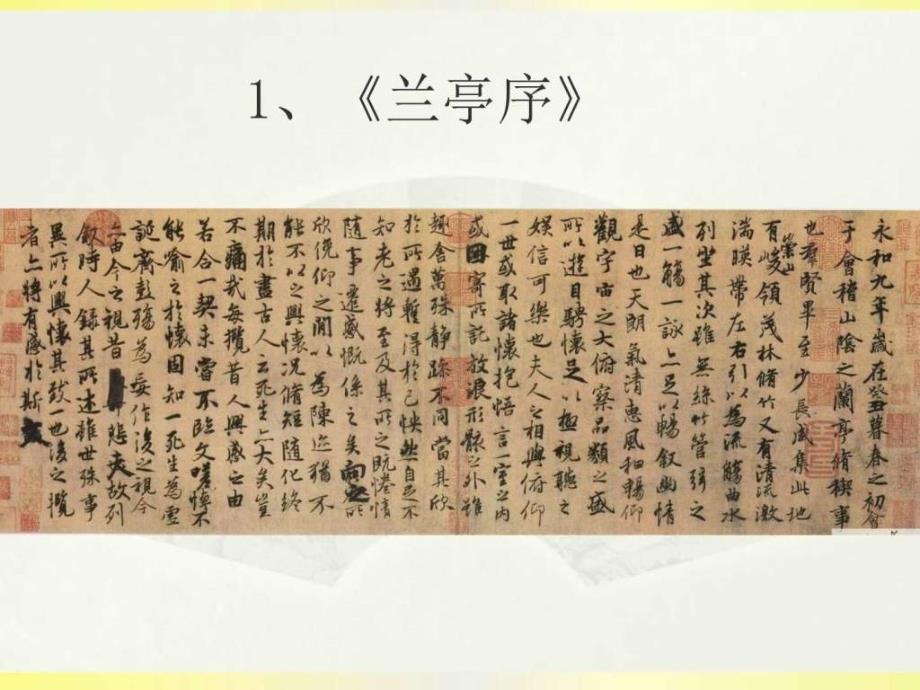 1、《兰亭序》
永和九年歲在癸丑暮春之初會
于會稽山陰之蘭亭脩稧事
也群賢畢至少長咸集此地
有崇山峻領茂林脩竹又有清流激
湍暎帶左右引以為流觴曲水
列坐其次雖無絲竹管弦之
盛一觴一詠亦足以暢敘幽情
是日也天朗氣清惠風和暢仰
觀宇宙之大俯察品類之盛
所以遊目騁懷足以極視聽之
娛信可樂也夫人之相與俯仰
一世或取諸懷抱悟言一室之內
或因寄所託放浪形骸之外雖
趣舍萬殊靜躁不同當其欣
於所遇暫得於己怏然自足不
知老之將至及其所之既惓情
隨事遷感慨係之矣向之所
欣俛仰之閒以為陳迹猶不
能不以之興懷況脩短隨化終
期於盡古人云死生亦大矣豈
不痛哉每攬昔人興感之由
若合一契未嘗不臨文嗟悼不
能喻之於懷固知一死生為虛
誕齊彭殤為妄作後之視今
亦由今之視昔悲夫故列
敘時人錄其所述雖世殊事
異所以興懷其致一也後之攬
者亦將有感於斯文